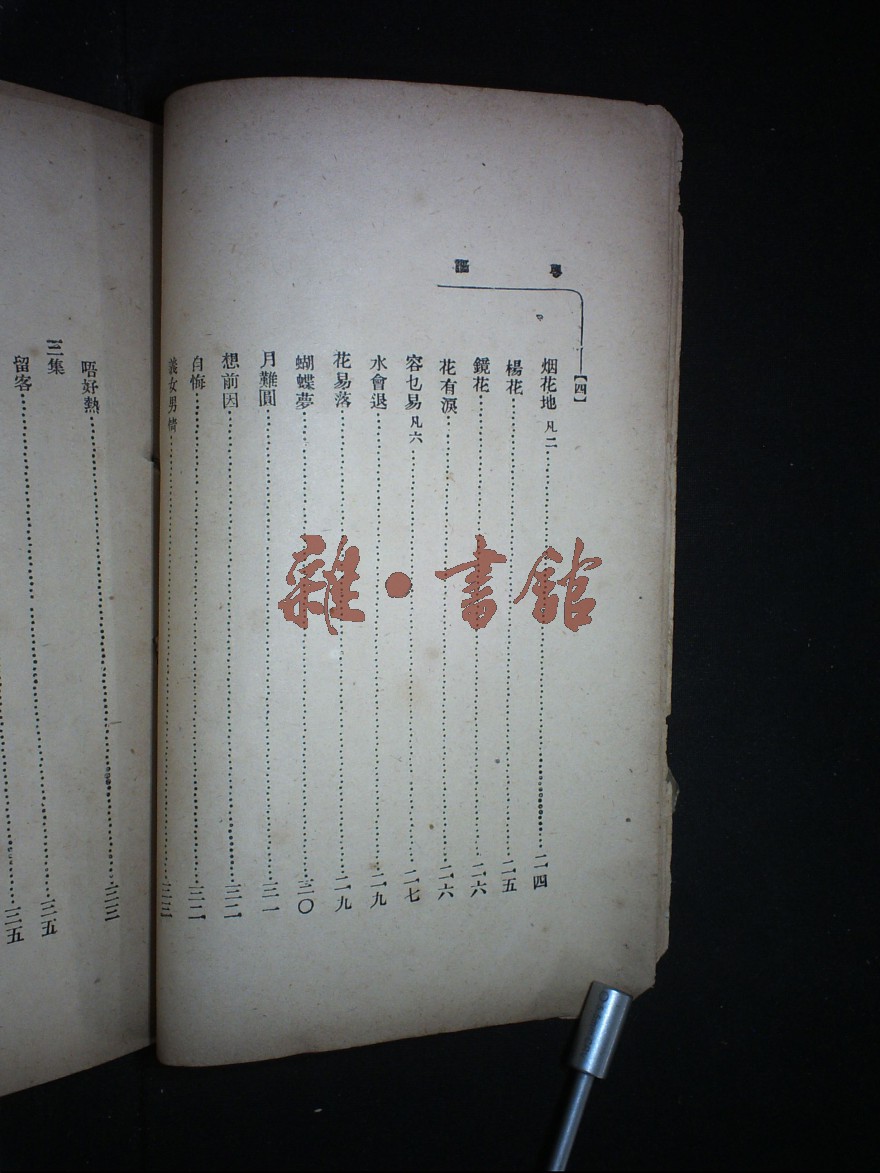 粵謳
【四】
烟花地 凡二 二四
楊花 二五
鏡花 二六
花有淚 二六
容乜易 凡六 二七
水會退 二九
花易落 二九
蝴蝶夢 三〇
月難圓 三一
想前因 三二
自悔 三二
義女男情 三三
唔好熱 三三
三集 三五
留客 三五
雜·書館